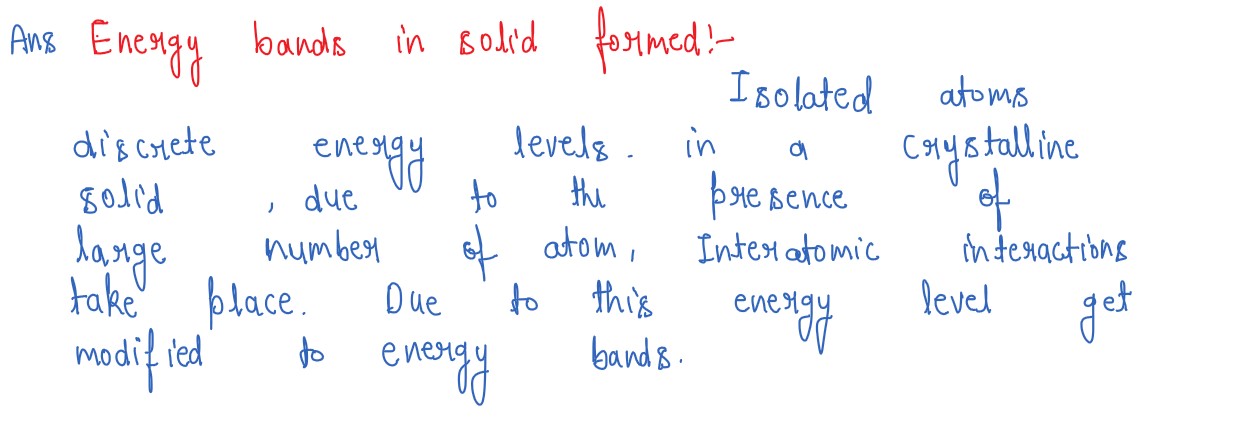 Ans Energy bands in solid formed:-
Isolated atoms
discrete energy levels. in a crystalline
solid , due to the presence of
large number of atom, Interatomic interactions
take place. Due to this energy level get
modified to energy bands.